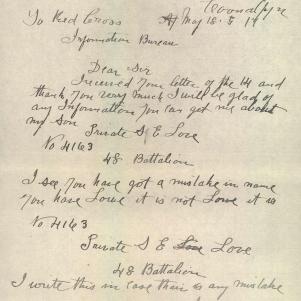 To Red Cross
May 18. 5 17
Information Bureau
Dear Sir
I received your letter of the 14 and
thank you very much I will be glad of
any Information you can get me about
my son
Private S E Love
No 4163
48 Battalion
I see you have got a mistake in name
you have Lowe it is not Lowe it is
No 4163
Private S E Love
48 Battalion
I write this in case their is any mistake